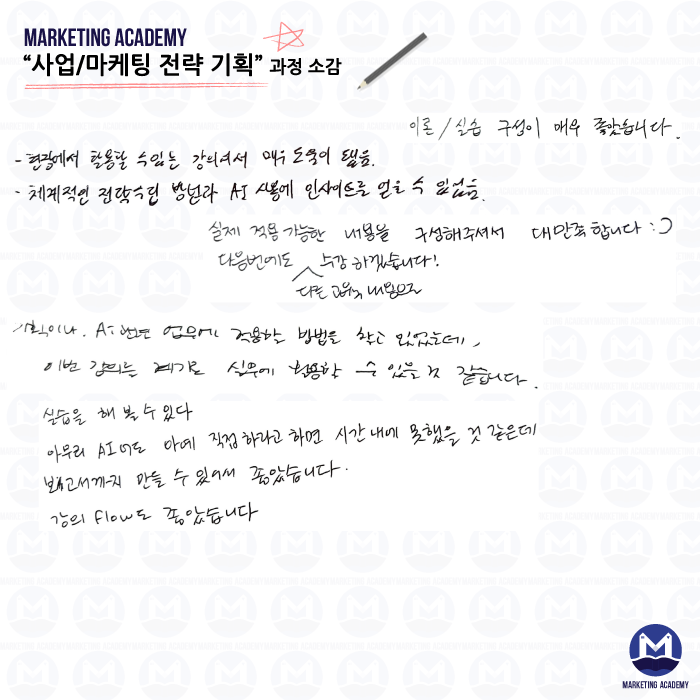 MARKETING ACADEMY
“사업/마케팅 전략 기획” 과정 소감
이론 / 실습 구성이 매우 좋았습니다.
- 현장에서 활용할 수 있는 강의여서 매우 도움이 됐음.
- 체계적인 전략수립 방법과 AI 사용에 인사이트를 얻을 수 있었음.
실제 적용가능한 내용을 구성해주셔서 대만족합니다 :)
다음번에도 수강하겠습니다!
다른 교육 내용으로
AI 관련 업무에 적용할 방법을 찾고 있었는데,
이번 강의는 계기로 실무에 활용할 수 있을 것 같습니다.
실습을 해 볼 수 있다
아무리 AI여도 아예 직접하라고 하면 시간내에 못했을 것 같은데
보고서까지 만들 수 있어서 좋았습니다.
강의 flow도 좋았습니다
MARKETING ACADEMY